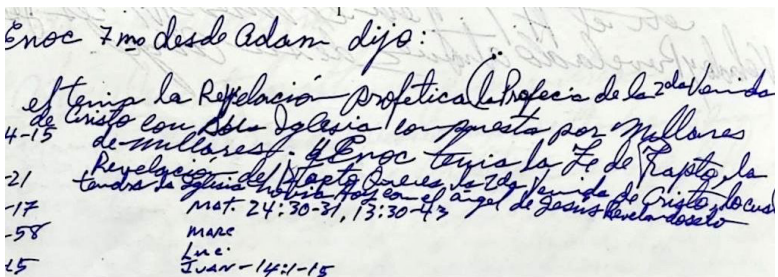 Enoc 7mo desde Adam dijo:
el tenia la Revelación profética (la Profecia de la 2da Venida
de Cristo con Iglesia compuesta por Millares
4-15 de millares. y Enoc tenia la Fe de Rapto, la
Revelación del Rapto que es la 2da Venida de Cristo, lo cual
-21 tendra la Iglesia novia Hoy con el angel de Jesus Revelandoselo
-17 Mat. 24:30-31, 13:30-43
-58 Marc
Luc.
15 Juan-14:1-15